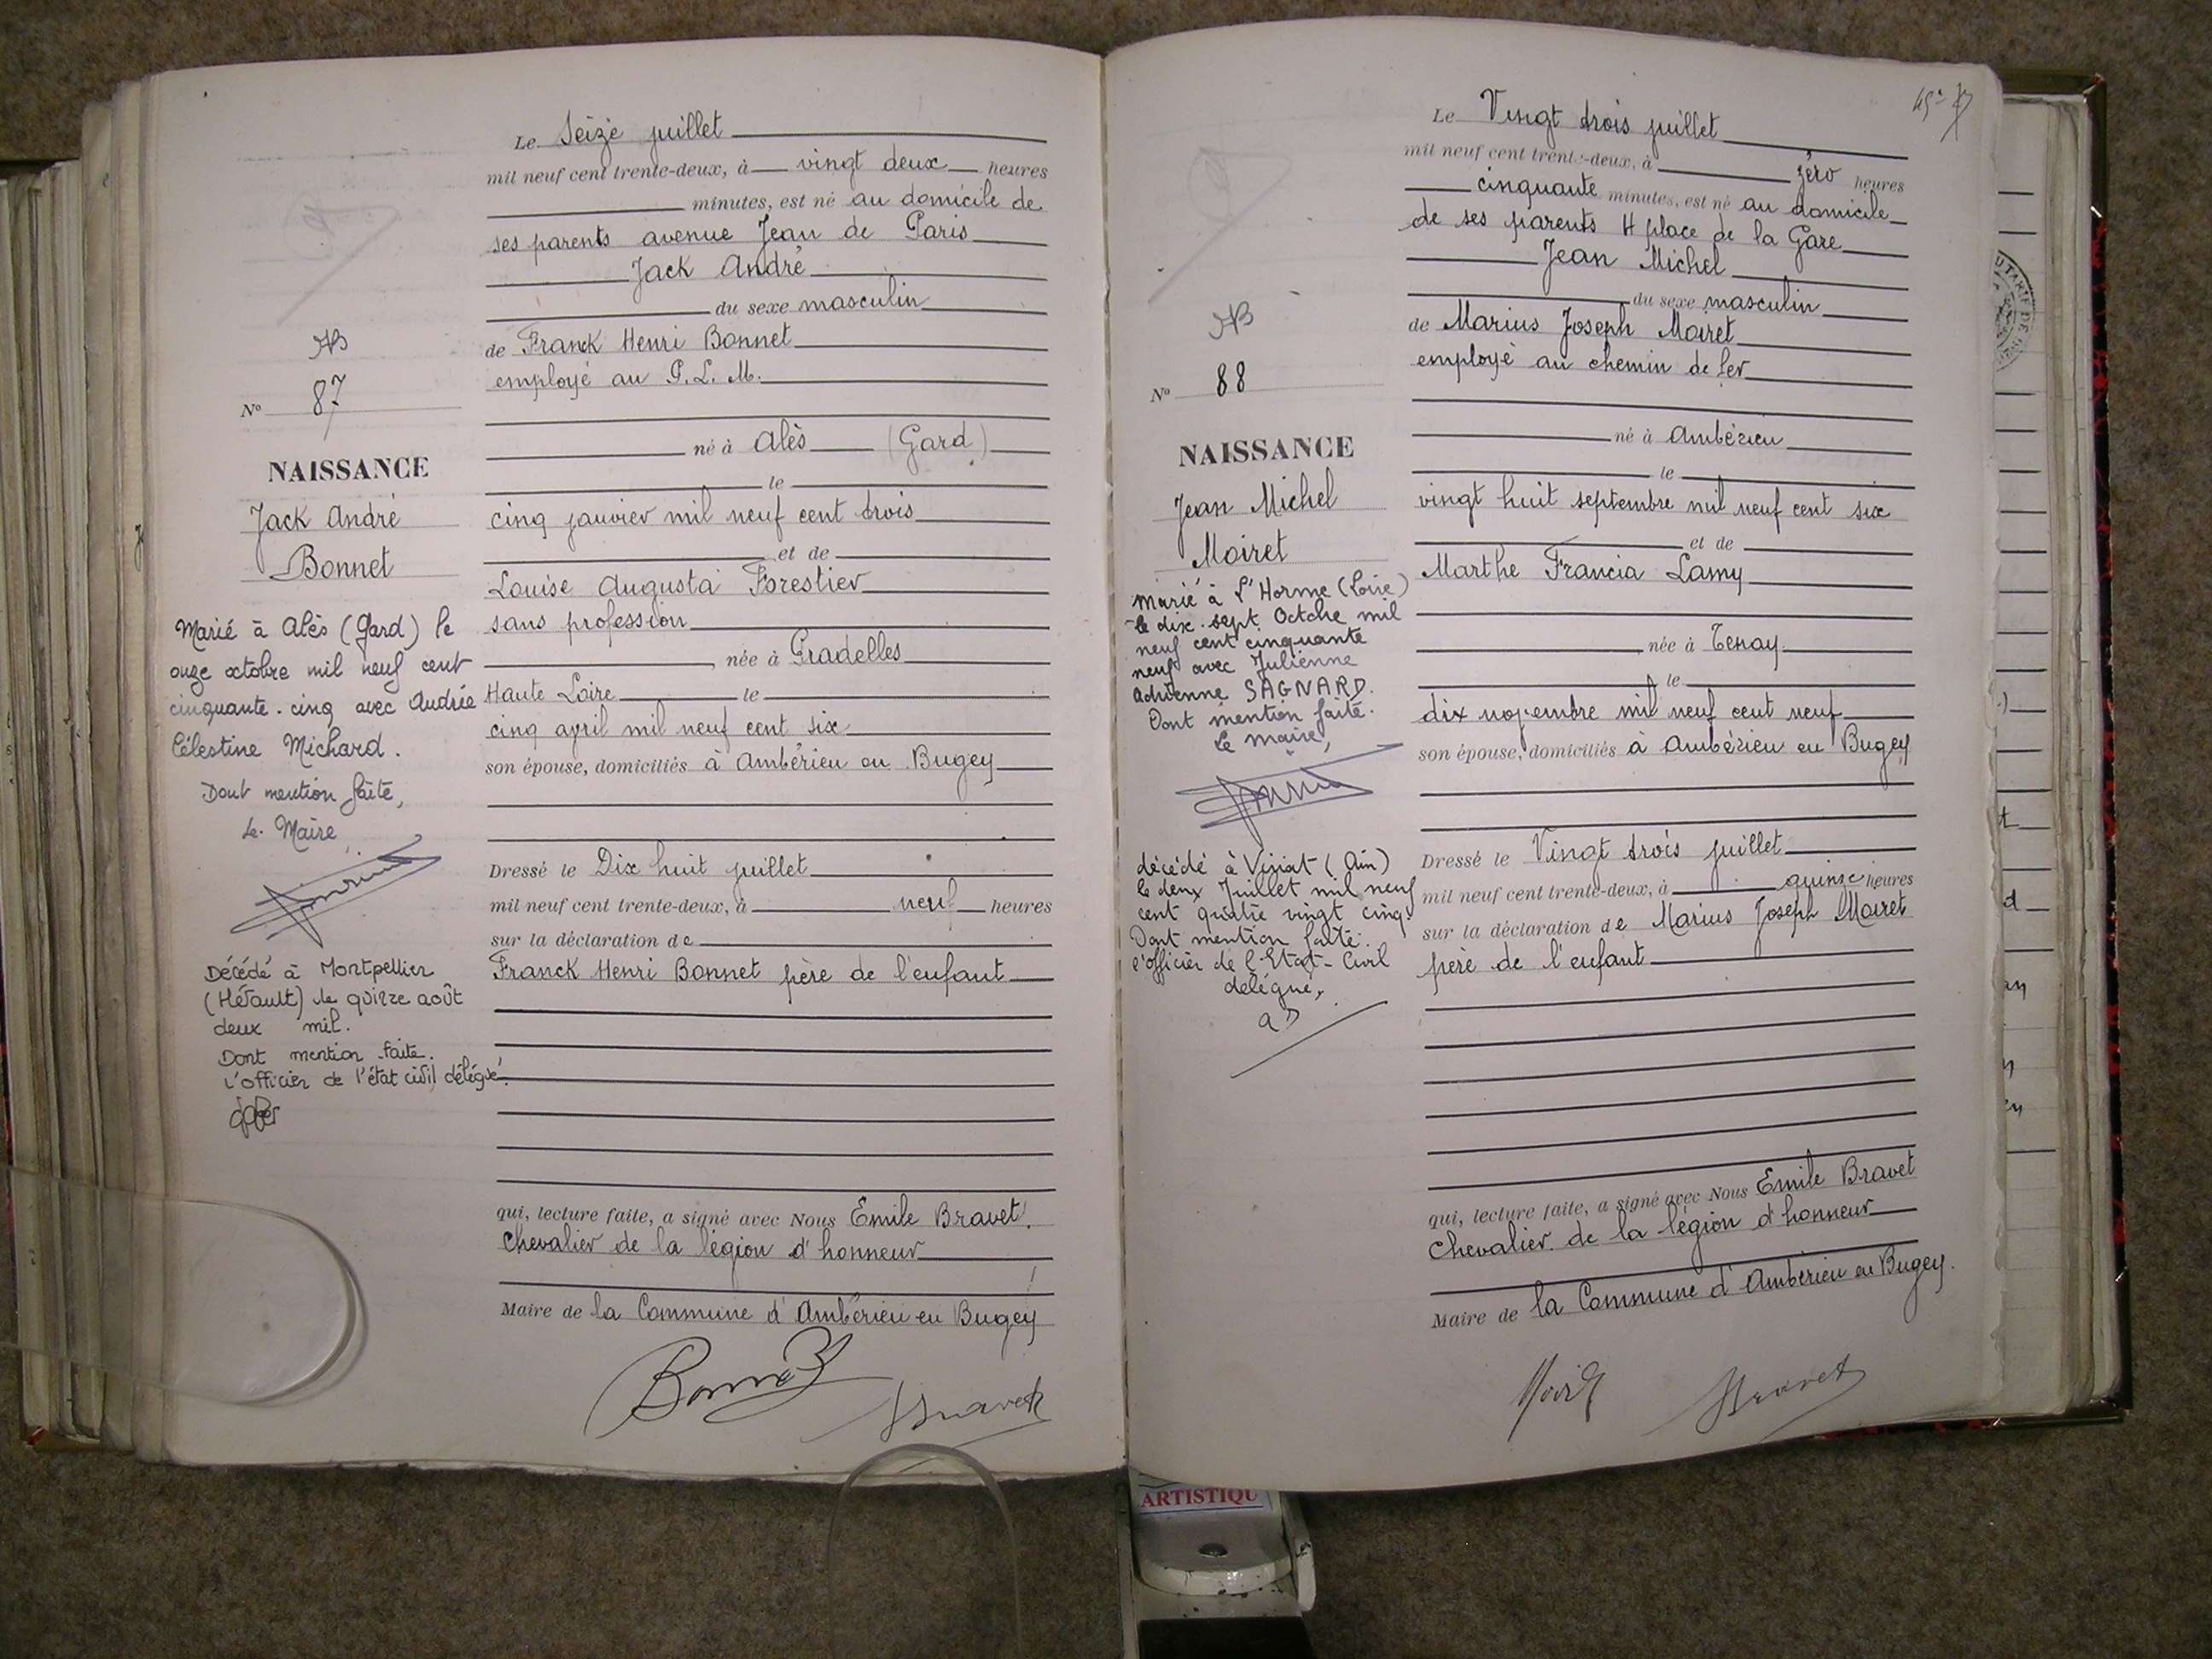 Le Seize juillet
mil neuf cent trente-deux, à vingt deux heures
minutes, est né au domicile de
ses parents avenue Jean de Paris
Jack André
du sexe masculin
de Franck Henri Bonnet
employé au P. L. M.
né à Alès (Gard)
le
cinq janvier mil neuf cent trois
et de
Louise Augusta Forestier
sans profession
née à Pradelles
Haute Loire le
cinq avril mil neuf cent six
son épouse, domiciliés à Ambérieu en Bugey
Dressé le Dix huit juillet
mil neuf cent trente-deux, à neuf heures
sur la déclaration de
Franck Henri Bonnet père de l'enfant
qui, lecture faite, a signé avec Nous Emile Bravet
Chevalier de la légion d'honneur
Maire de la Commune d'Ambérieu en Bugey
Bonnet
Bravet
No 87
NAISSANCE
Jack André
Bonnet
Marié à Alès (Gard) le
onze octobre mil neuf cent
cinquante-cinq avec Andrée
Célestine Michard.
Dont mention faite,
Le Maire,
Décédé à Montpellier
(Hérault) le quinze août
deux mil.
Dont mention faite.
L'officier de l'état civil délégué.
Le Vingt trois juillet
mil neuf cent trente-deux, à zéro heures
cinquante minutes, est né au domicile
de ses parents 4 place de la Gare
Jean Michel
du sexe masculin
de Marius Joseph Moiret
employé au chemin de fer
né à Ambérieu
le
vingt huit septembre mil neuf cent six
et de
Marthe Francia Lamy
née à Tenay
le
dix novembre mil neuf cent neuf
son épouse, domiciliés à Ambérieu en Bugey
Dressé le Vingt trois juillet
mil neuf cent trente-deux, à quinze heures
sur la déclaration de Marius Joseph Moiret
père de l'enfant
qui, lecture faite, a signé avec Nous Emile Bravet
Chevalier de la légion d'honneur
Maire de la Commune d'Ambérieu en Bugey.
Moiret
Bravet
No 88
NAISSANCE
Jean Michel
Moiret
Marié à L'Horme (Loire)
le dix-sept Octobre mil
neuf cent cinquante
neuf avec Julienne
Adrienne SAGNARD.
Dont mention faite.
Le maire,
décédé à Viriat (Ain)
le deux Juillet mil neuf
cent quatre vingt cinq.
Dont mention faite.
l'officier de l'Etat-Civil
délégué,
ARTISTIQU